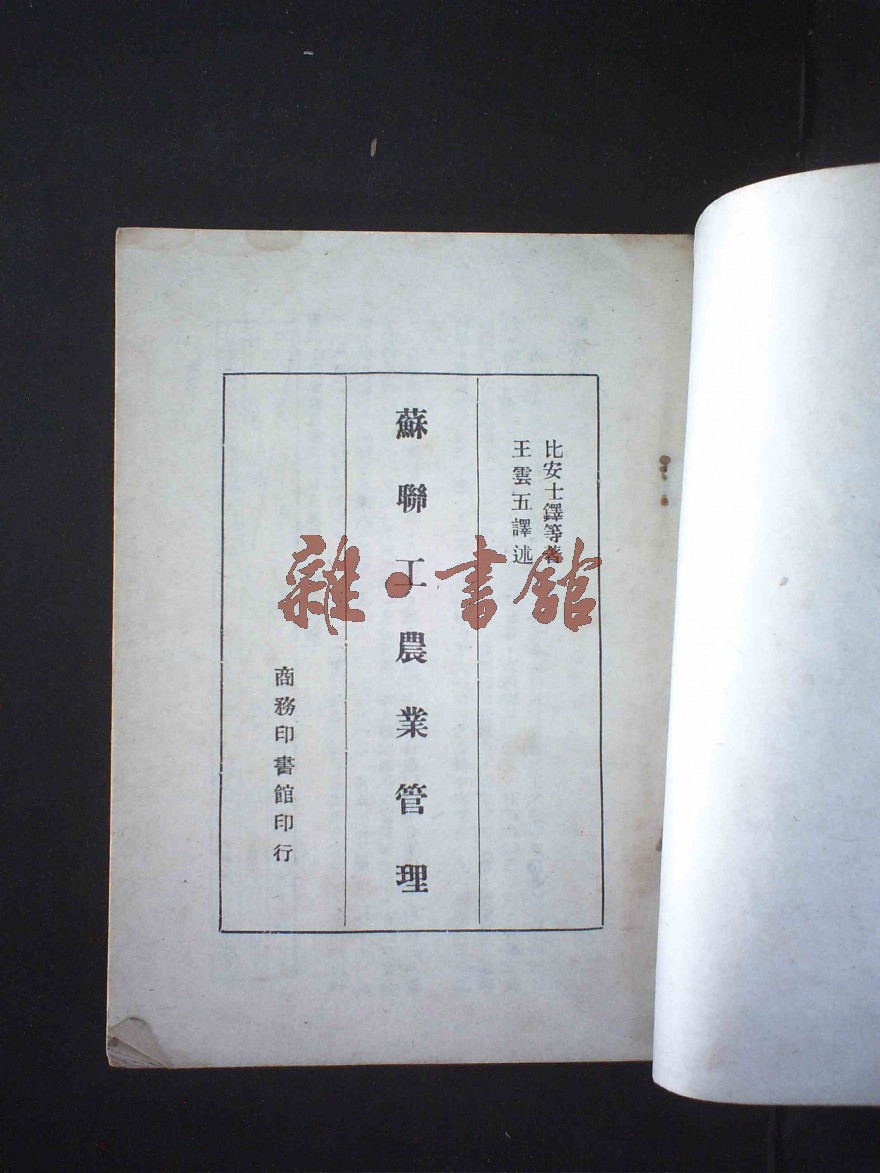 比安士鐸等著
王雲五譯述
蘇聯工農業管理
商務印書館印行
雜·書館